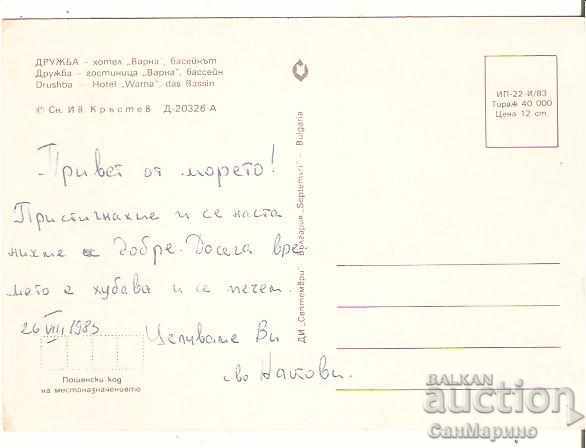 ДРУЖБА - хотел „Варна", басейнът
Дружба - гостиница "Варна", бассейн
Drushba - Hotel "Warna", das Bassin
© Сн. Ив. Кръстев Д-20326-А
ИП-22-И/83
Тираж 40 000
Цена 12 ст.
ДИ „Септември" България "Septemvri" - Bulgaria
Привет от морето!
Пристигнахме и се наста
нихме добре. Досега вре-
мето е хубава и се печем.
26 VIII 1983
Целуваме Ви
Пощенски код
на местоназначението
BALKAN
auction
СанМарино